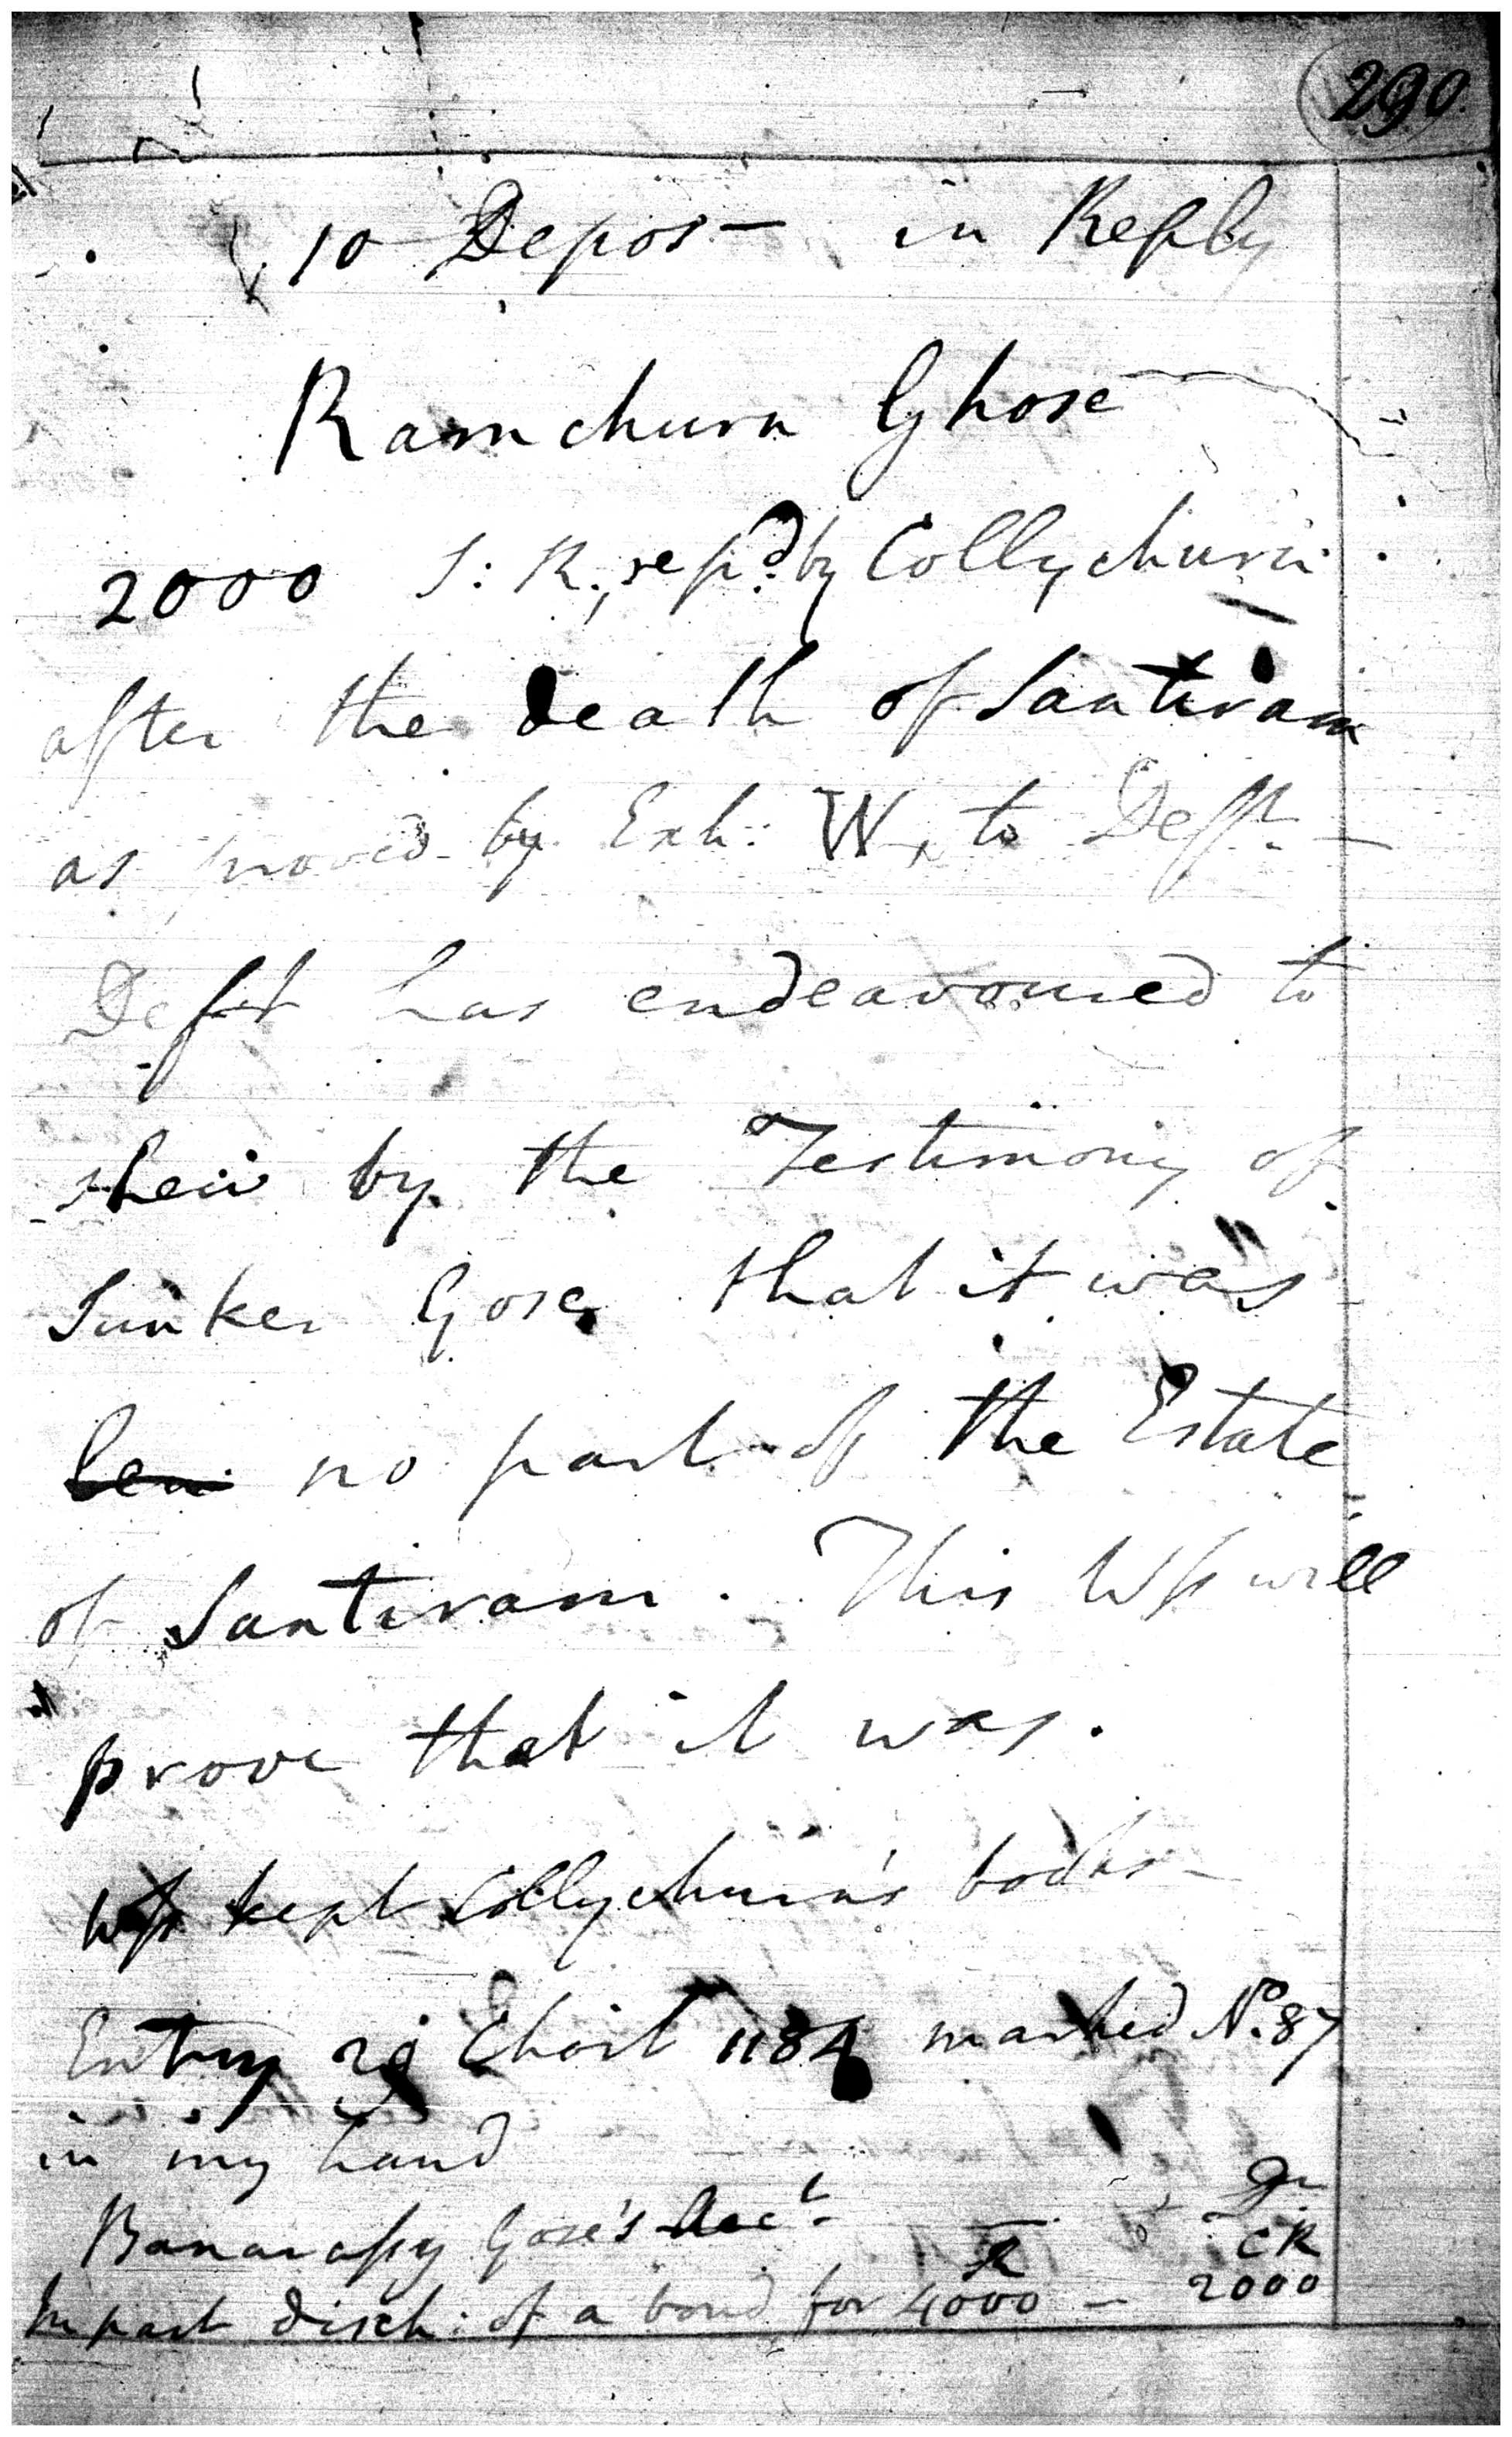 290
10 Depos - in Reply
Ramchurn Ghose
2000 S: R., rep.d by Collychurn
after the death of Santiram
as proved by Exh: W, to Deft. -
Deft has endeavoured to
shew by the Testimony of
Sunker Gose that it was
no part of the Estate
of Santiram. This Wss will
prove that it was.
Wss kept Collychurn's books -
Entry 29 Choit 1184 marked No. 87
in my hand
Banarassy Gose's Acct. Dr.
CR
In part disch: of a bond for 4000 - 2000